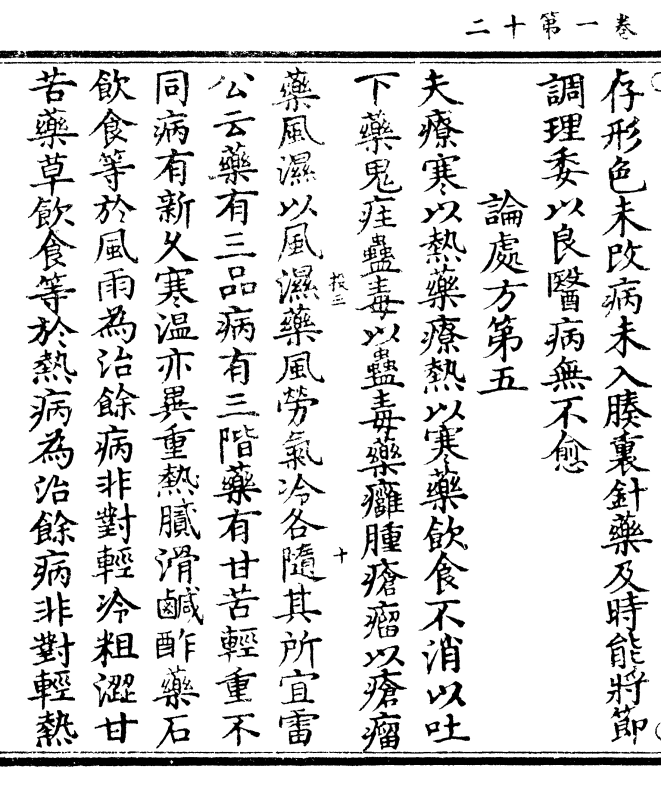 卷一第十二
存形色未改病未入腠裏針藥及時能將節
調理委以良醫病無不愈
論處方第五
夫療寒以熱藥療熱以寒藥飲食不消以吐
下藥鬼疰蠱毒以蠱毒藥癰腫瘡瘤以瘡瘤
藥風濕以風濕藥風勞氣冷各隨其所宜雷
公云藥有三品病有三階藥有甘苦輕重不
同病有新久寒溫亦異重熱膩滑鹹酢藥石
飲食等於風雨為治餘病非對輕冷粗澀甘
苦藥草飲食等於熱病為治餘病非對輕熱
十